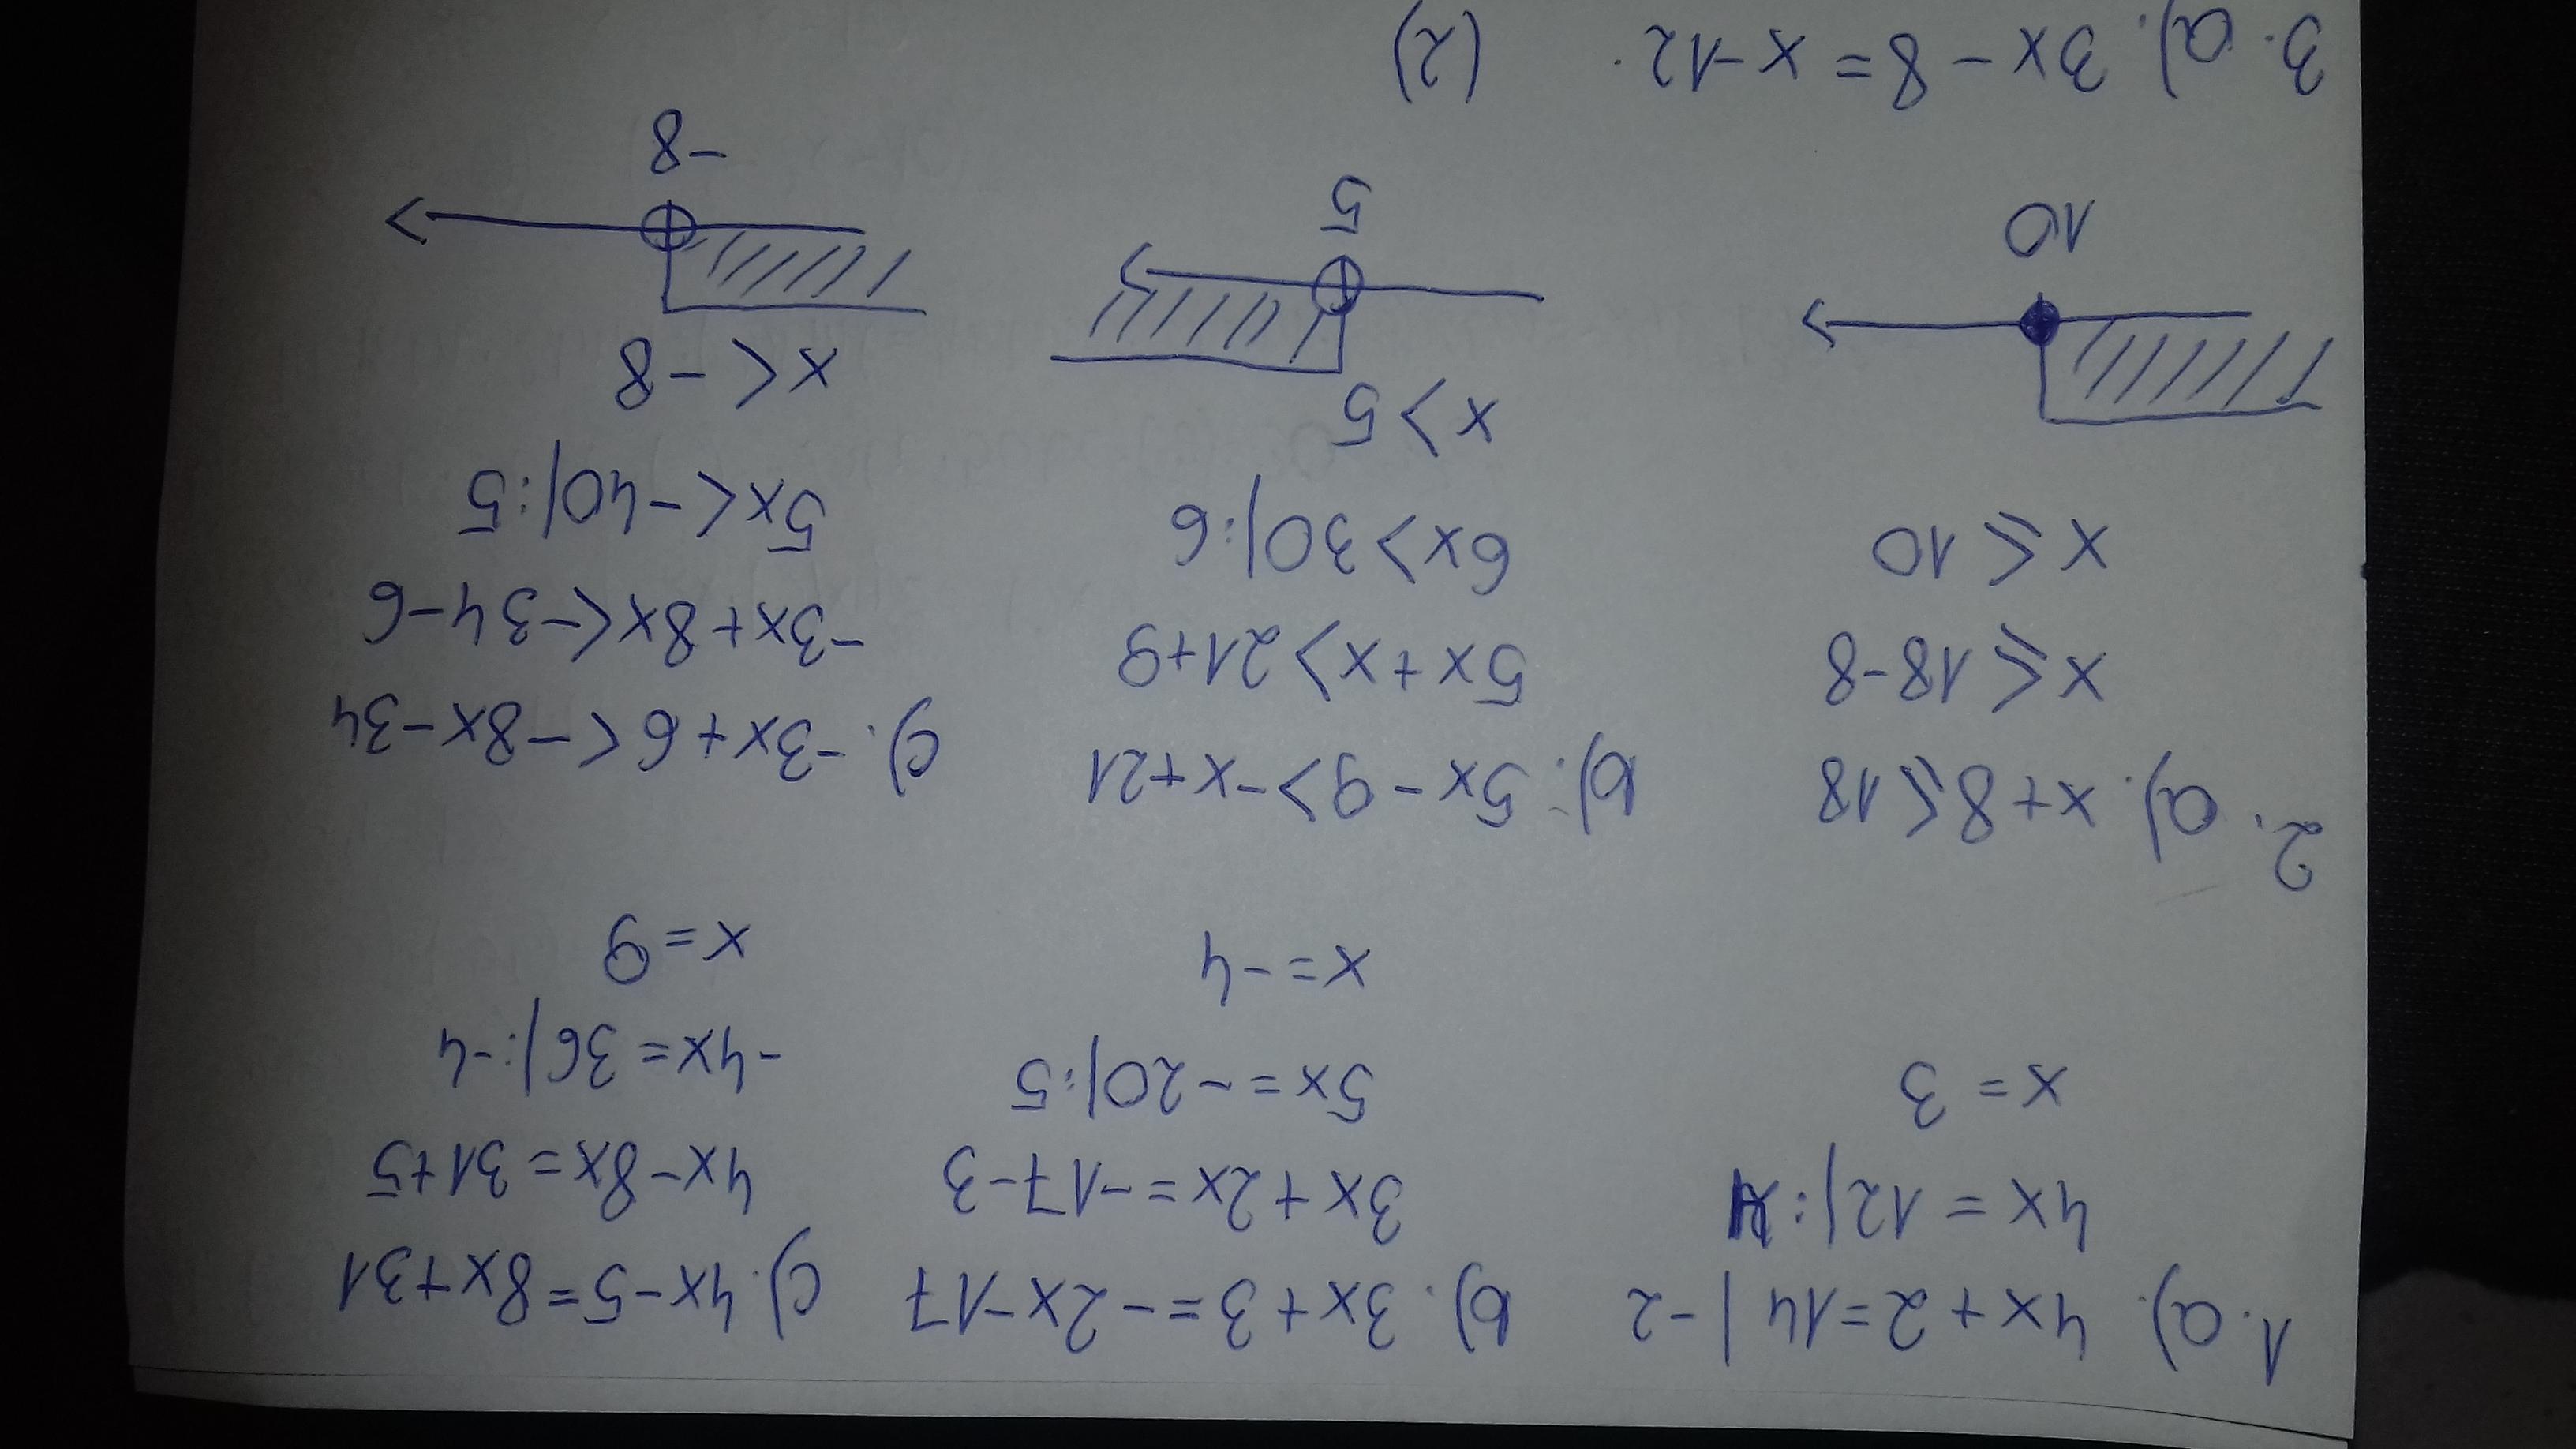 1. a). 4x + 2 = 14 | -2
4x = 12 | : 4
x = 3
b). 3x + 3 = -2x -17
3x + 2x = -17 -3
5x = -20 | : 5
x = -4
c). 4x - 5 = 8x + 31
4x - 8x = 31 + 5
-4x = 36 | : -4
x = 9
2. a). x + 8 ≤ 18
x ≤ 18 - 8
x ≤ 10
10
b). 5x - 9 > -x + 21
5x + x > 21 + 9
6x > 30 | : 6
x > 5
5
c). -3x + 6 < -8x - 34
-3x + 8x < -34 - 6
5x < -40 | : 5
x < -8
-8
3. a). 3x - 8 = x - 12. (2)